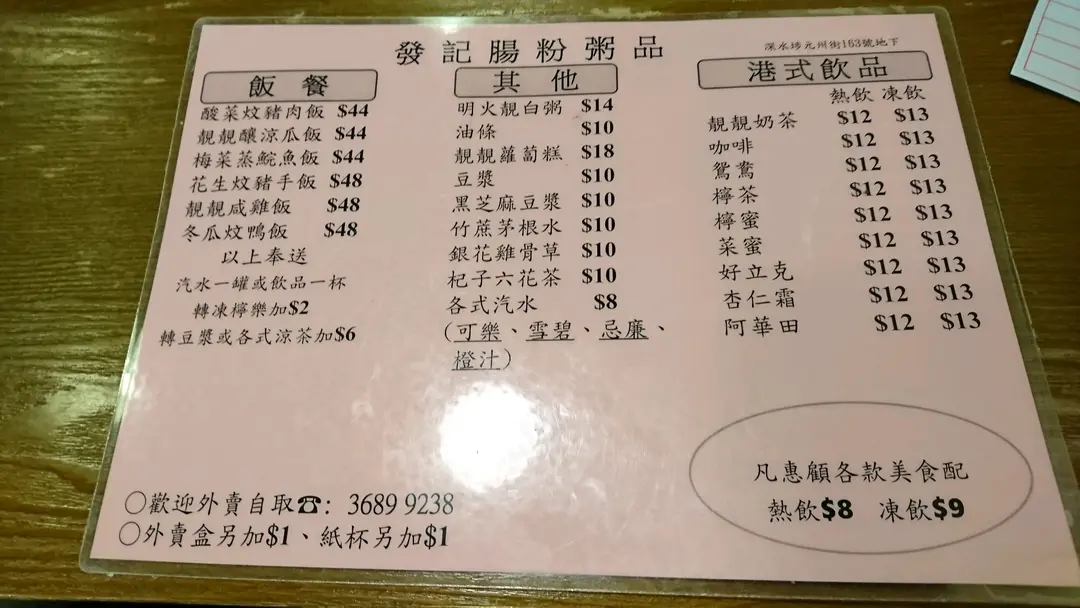 發記腸粉粥品
深水埗元州街163號地下
飯餐
酸菜炆豬肉飯 $44
靚靚釀涼瓜飯 $44
梅菜蒸鯇魚飯 $44
花生炆豬手飯 $48
靚靚咸雞飯 $48
冬瓜炆鴨飯 $48
以上奉送
汽水一罐或飲品一杯
轉凍檸樂加$2
轉豆漿或各式涼茶加$6
其他
明火靚白粥 $14
油條 $10
靚靚蘿蔔糕 $18
豆漿 $10
黑芝麻豆漿 $10
竹蔗茅根水 $10
銀花雞骨草 $10
杞子六花茶 $10
各式汽水 $8
(可樂、雪碧、忌廉、
橙汁)
港式飲品
熱飲 凍飲
靚靚奶茶 $12 $13
咖啡 $12 $13
鴛鴦 $12 $13
檸茶 $12 $13
檸蜜 $12 $13
菜蜜 $12 $13
好立克 $12 $13
杏仁霜 $12 $13
阿華田 $12 $13
凡惠顧各款美食配
熱飲$8 凍飲$9
○歡迎外賣自取☎: 3689 9238
○外賣盒另加$1、紙杯另加$1